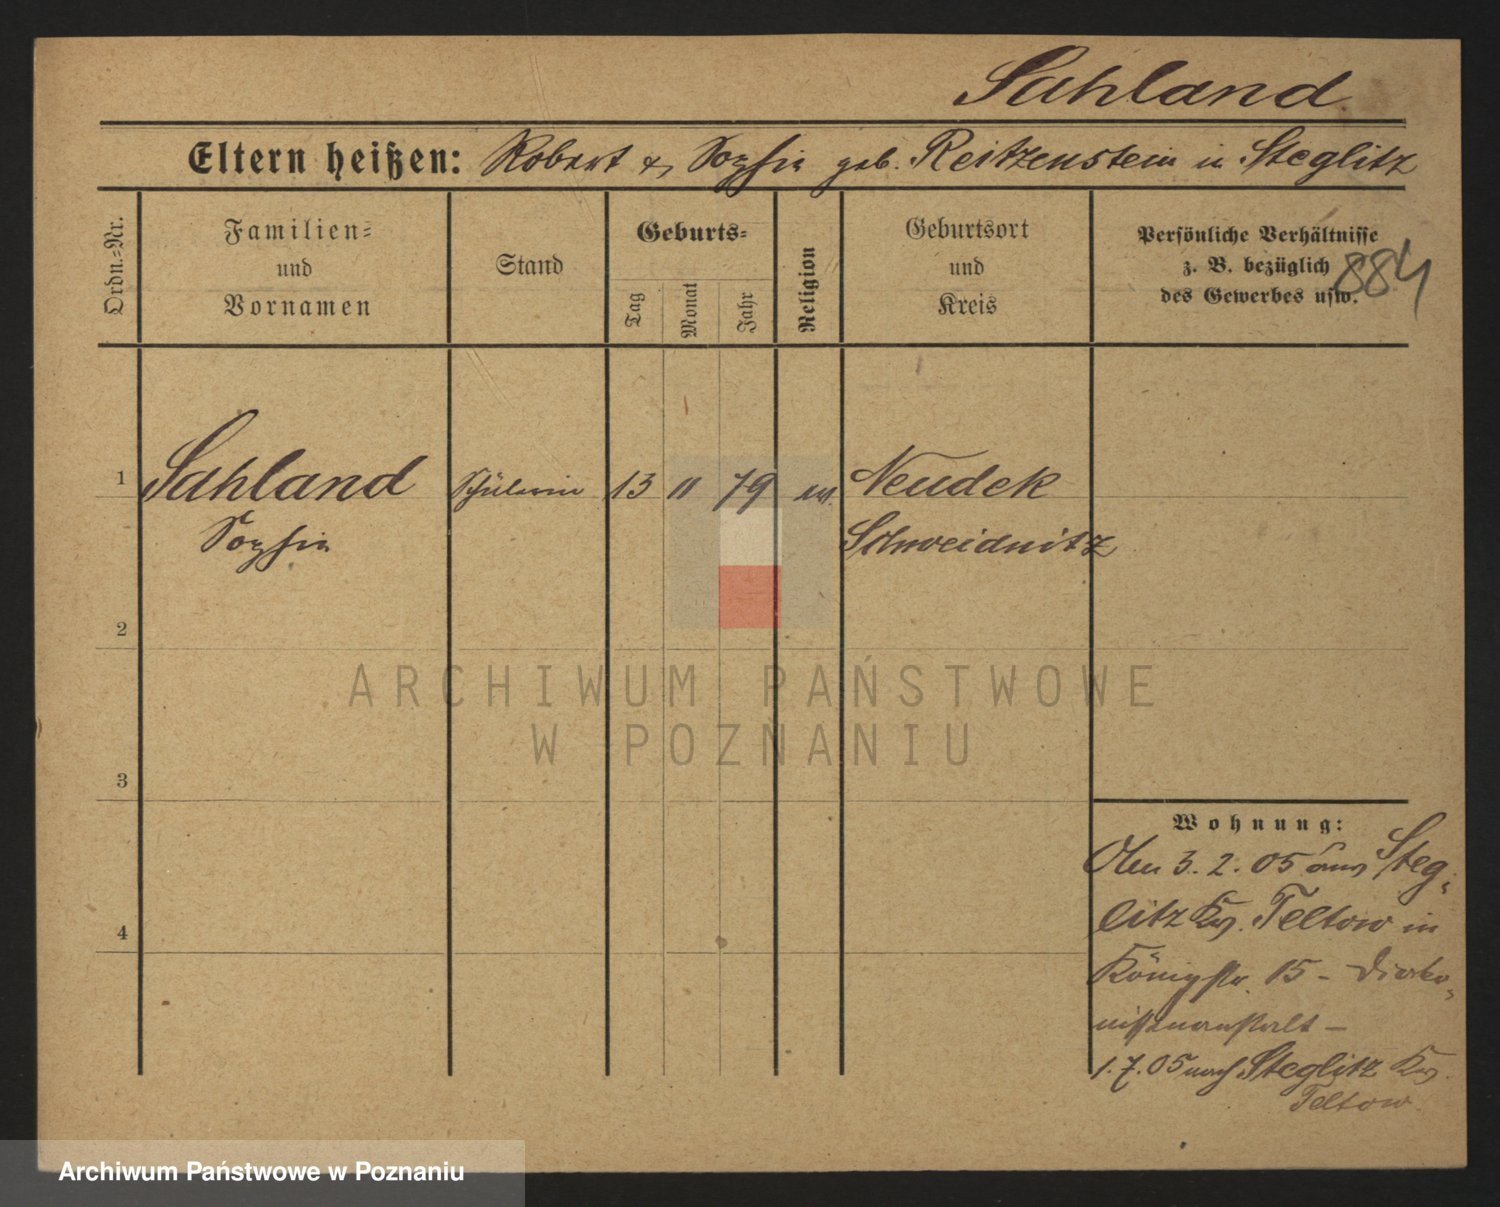 Sahland
Eltern heißen: Robert & Sophie geb. Reitzenstein in Steglitz
Ordn.-Nr.
Familien-
und
Vornamen
Stand
Geburts-
Tag
Monat
Jahr
Religion
Geburtsort
und
Kreis
Persönliche Verhältnisse
z. B. bezüglich
des Gewerbes usw.
884
1 Sahland Schülerin 13 11 79 ev. Neudek
Sophie Schweidnitz
2
3
4
ARCHIWUM PAŃSTWOWE
W POZNANIU
Wohnung:
3. 2. 05 aus Steg-
litz Kr. Teltow in
Königstr. 15 - Diako-
nissenanstalt -
1. 7. 05 nach Steglitz Kr.
Teltow
Archiwum Państwowe w Poznaniu